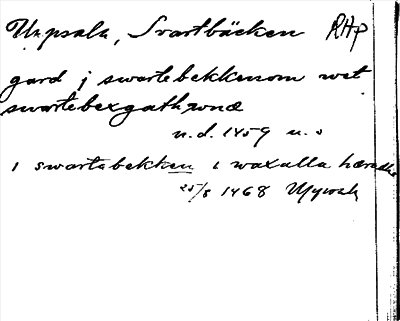 Uppsala, Svartbäcken RHp
gard j swartebekkenom wet
swartebexgathwnæ
n.d. 1459 u.s
i swartabekken i waxalla hæradhe
25/8 1468